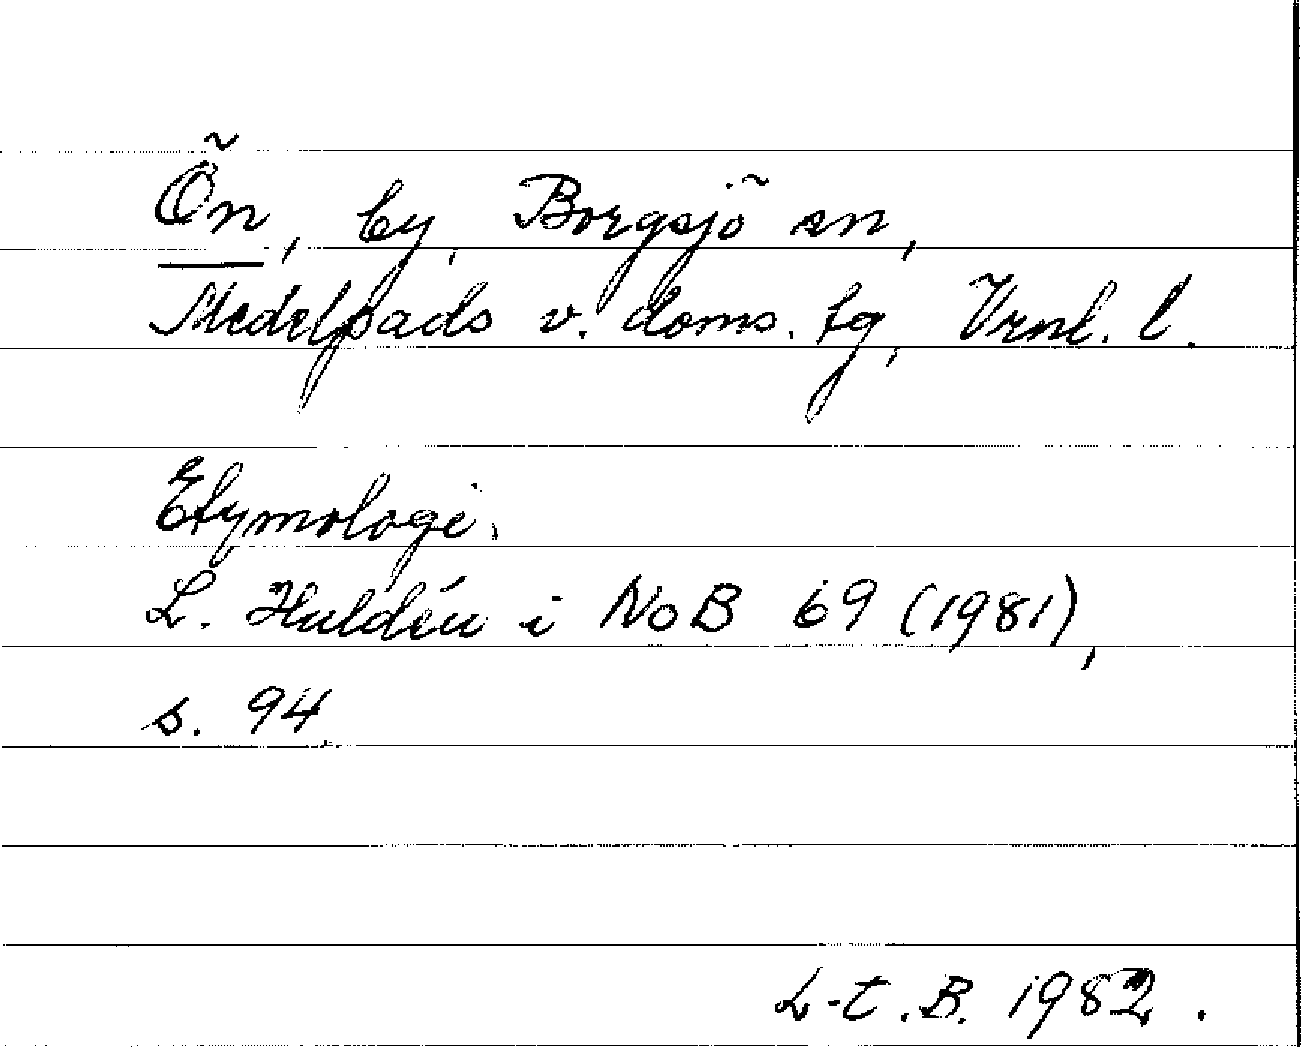 Ön, by, Borgsjö sn,
Medelpads v. doms. tg, Vrnl. l.
Etymologi.
L. Huldén i NoB 69 (1981),
s. 94.
L-t. B. 1982.